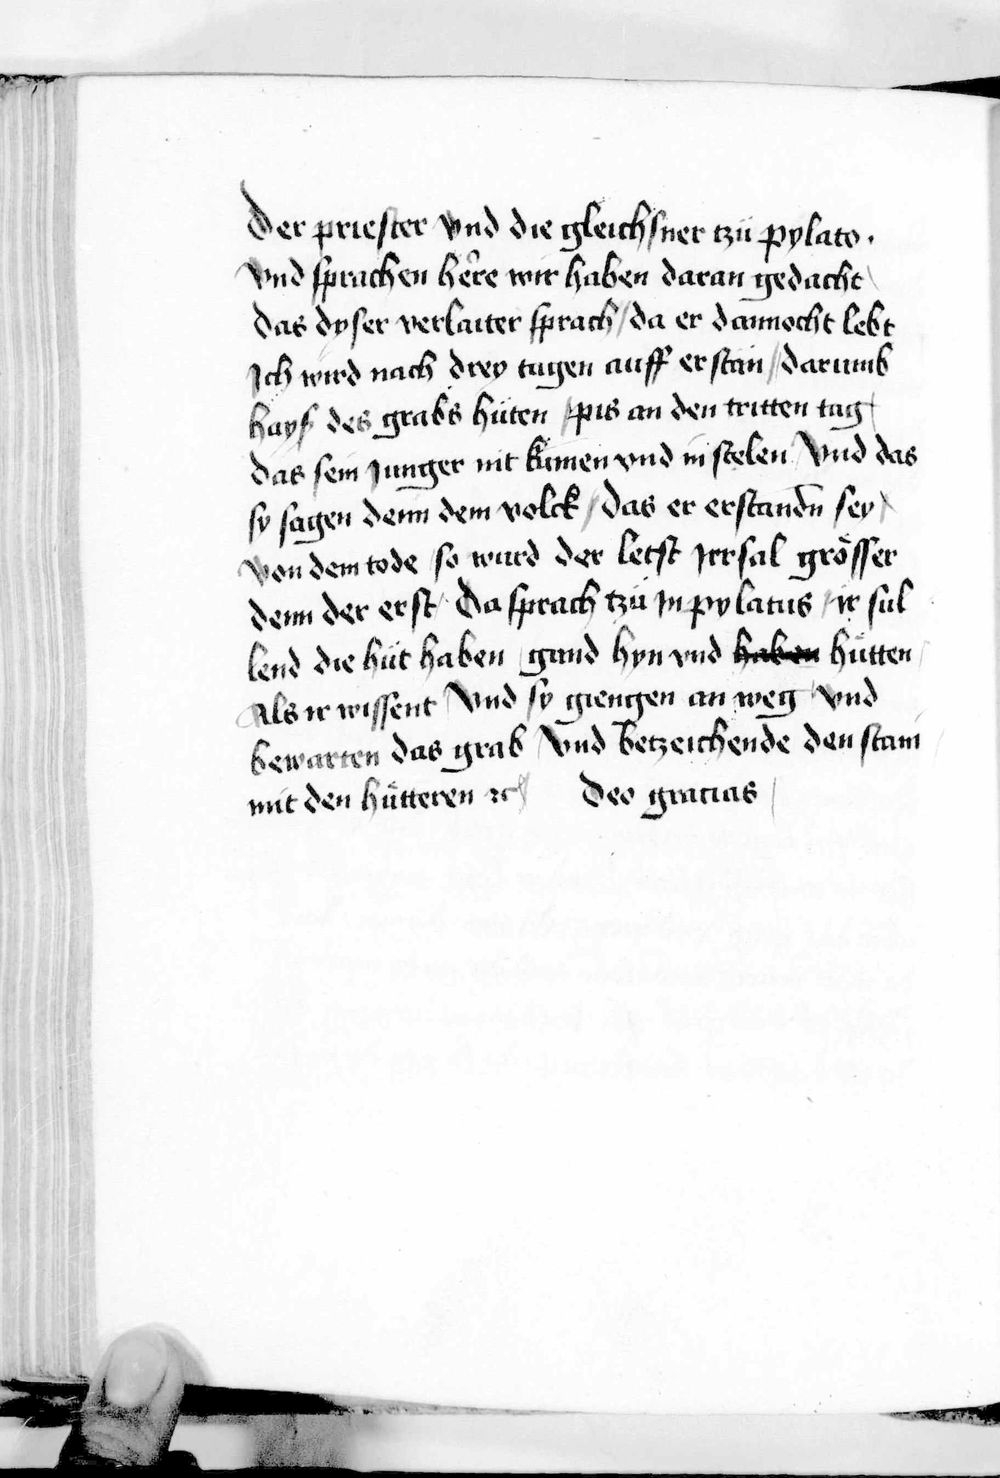 Der priester vnd die gleichsner tzü pylato .
vnd sprachen here wir haben daran gedacht
das dyser verlaiter sprach / da er dannocht lebt
Ich wird nach drey tagen auff erstan / darumb
hayß des grabs hüten / pis an den tritten tag
das sein Junger nit kumen vnd in stelen / Vnd das
sy sagen denn dem volck / das er erstandn̄ sey /
von dem tode / so ward der letst Irrsal grösser
denn der erst / Da sprach tzü In pylatus / ir sul
lend die hüt haben / gand hyn vnd haben hütten /
Als ir wissent / Vnd sy giengen an weg / vnd
bewarten das grab / Vnd betzeichende den stain
mit den hütteren ꝛc / Deo gracias /